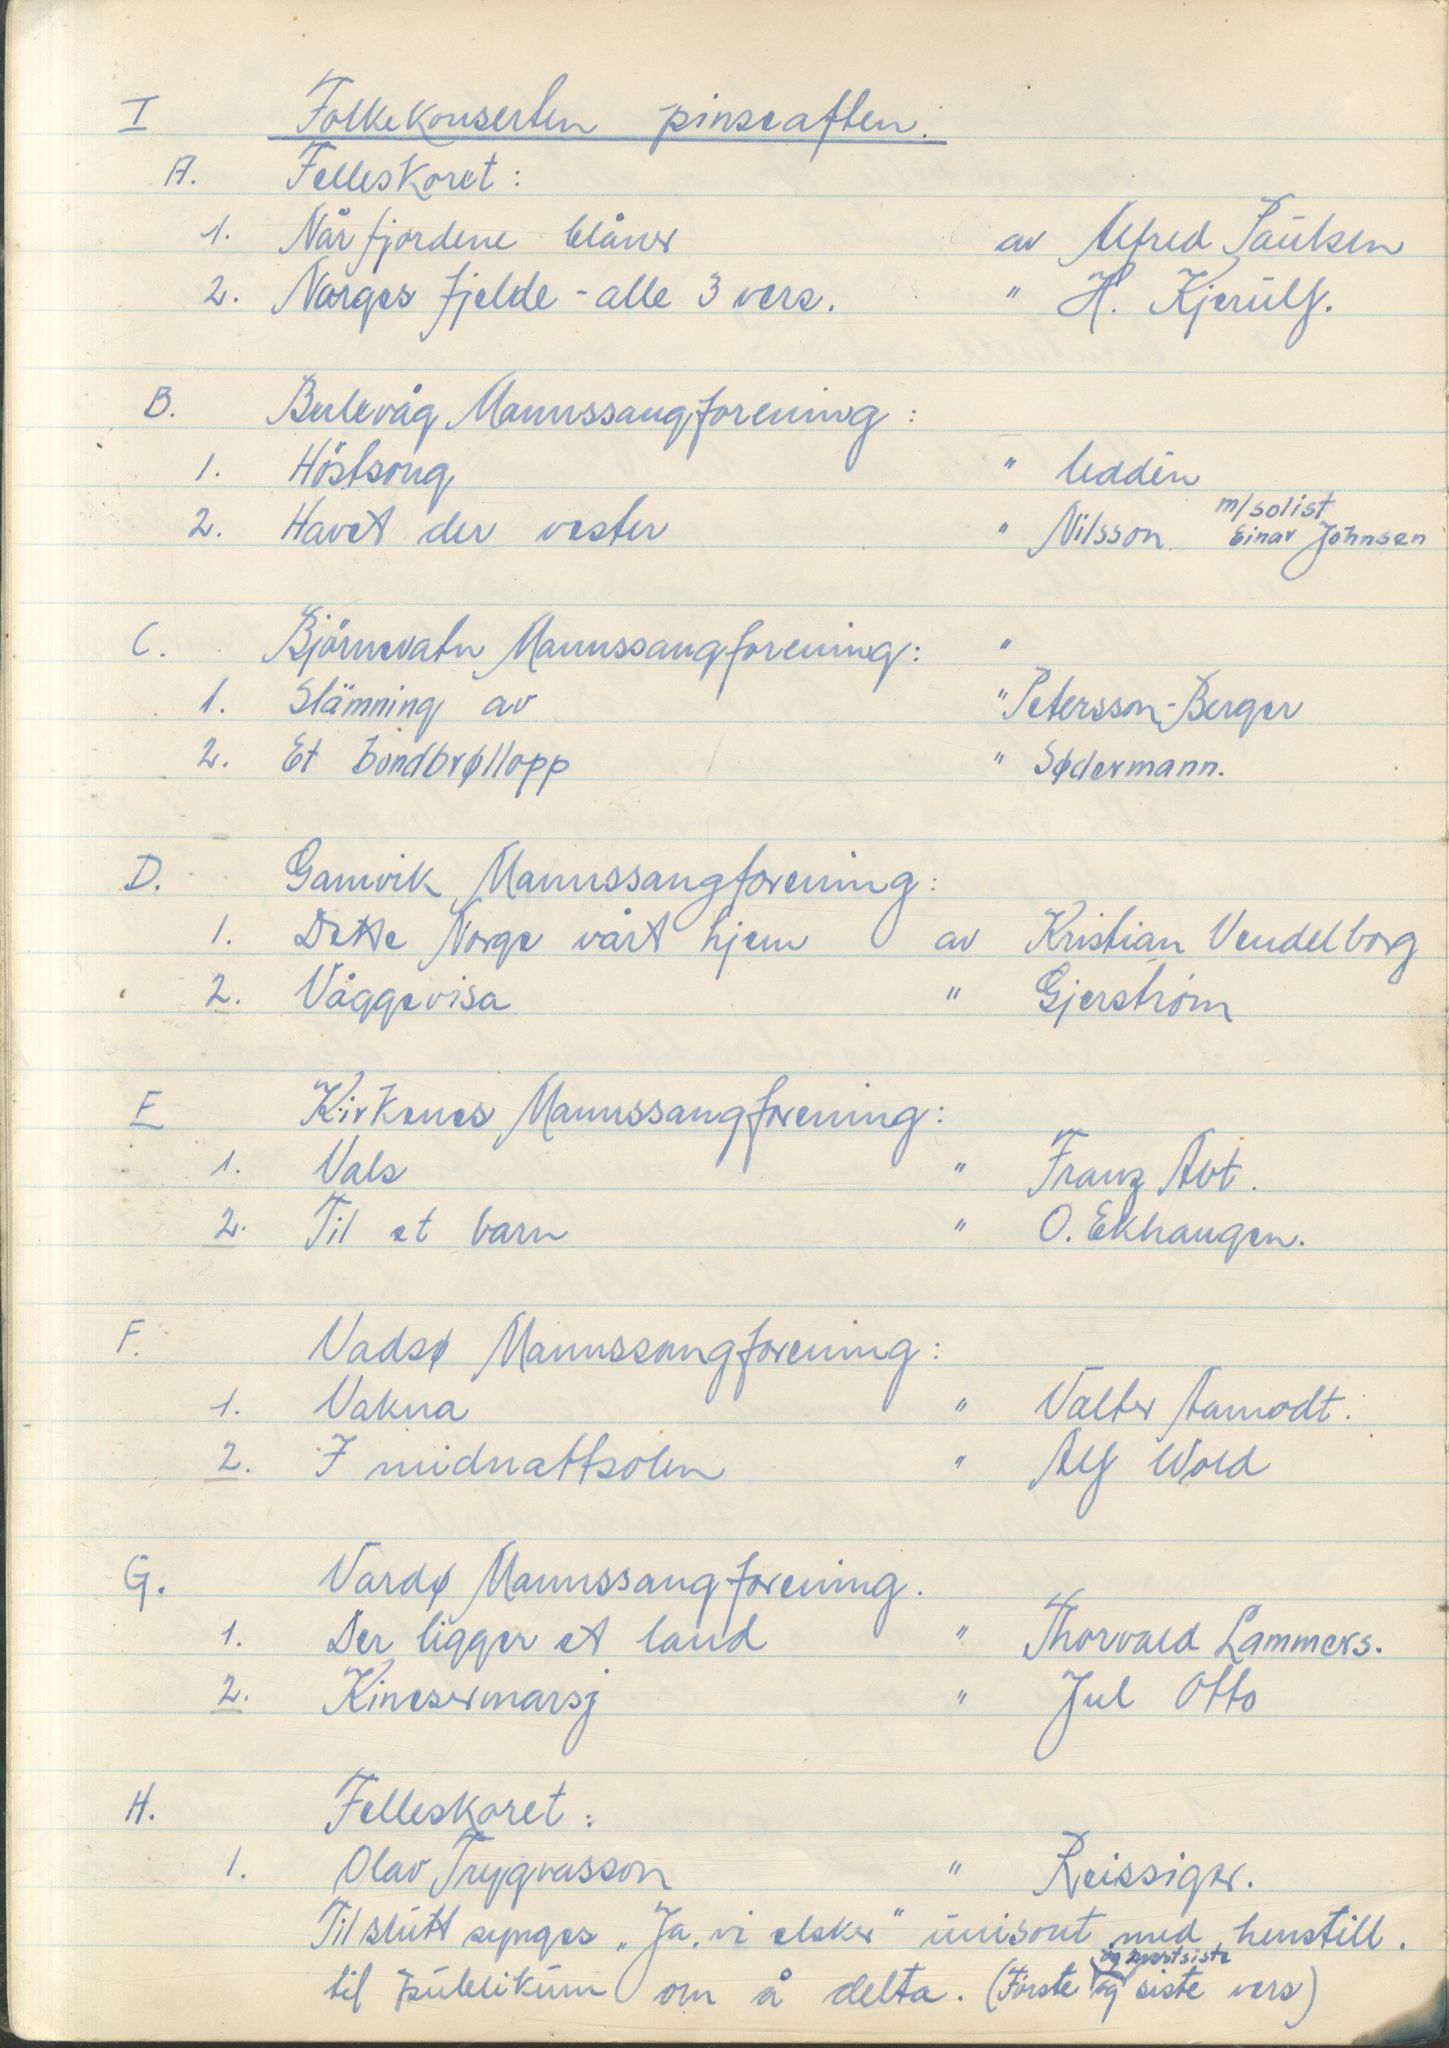 I Folkekonserten pinseaften.
A. Felleskoret:
1. Når fjordene blåner av Alfred Paulsen
2. Norges fjelde - alle 3 vers. " H. Kjerulf.
B. Bulevåg Mannssangforening:
1. Höstsong " Uddén
2. Havet der vester " Nilsson m/solist Einar Johnsen
C. Björnevatn Mannssangforening: "
1. Stämning av " Petersson-Berger
2. Et bondbrøllopp " Sødermann.
D. Gamvik Mannssangforening:
1. Dette Norge vårt hjem av Kristian Vendelborg
2. Våggevisa " Gjerström
E Kirkenes Mannssangforening:
1. Vals " Franz Abt.
2. Til et barn " O. Ekhaugen.
F. Vadsø Mannssangforening:
1. Vakna " Valter Aamodt.
2. I midnattsolen " Alf Wold
G. Vardø Mannssangforening.
1. Der ligger et land " Thorvald Lammers.
2. Kinesermarsj " Jul Otto
H. Felleskoret:
1. Olav Trygvasson " Reissiger.
Til slutt synges "Ja, vi elsker" unisont med henstill.
til publikum om å delta. (Förste og nestsiste og siste vers)